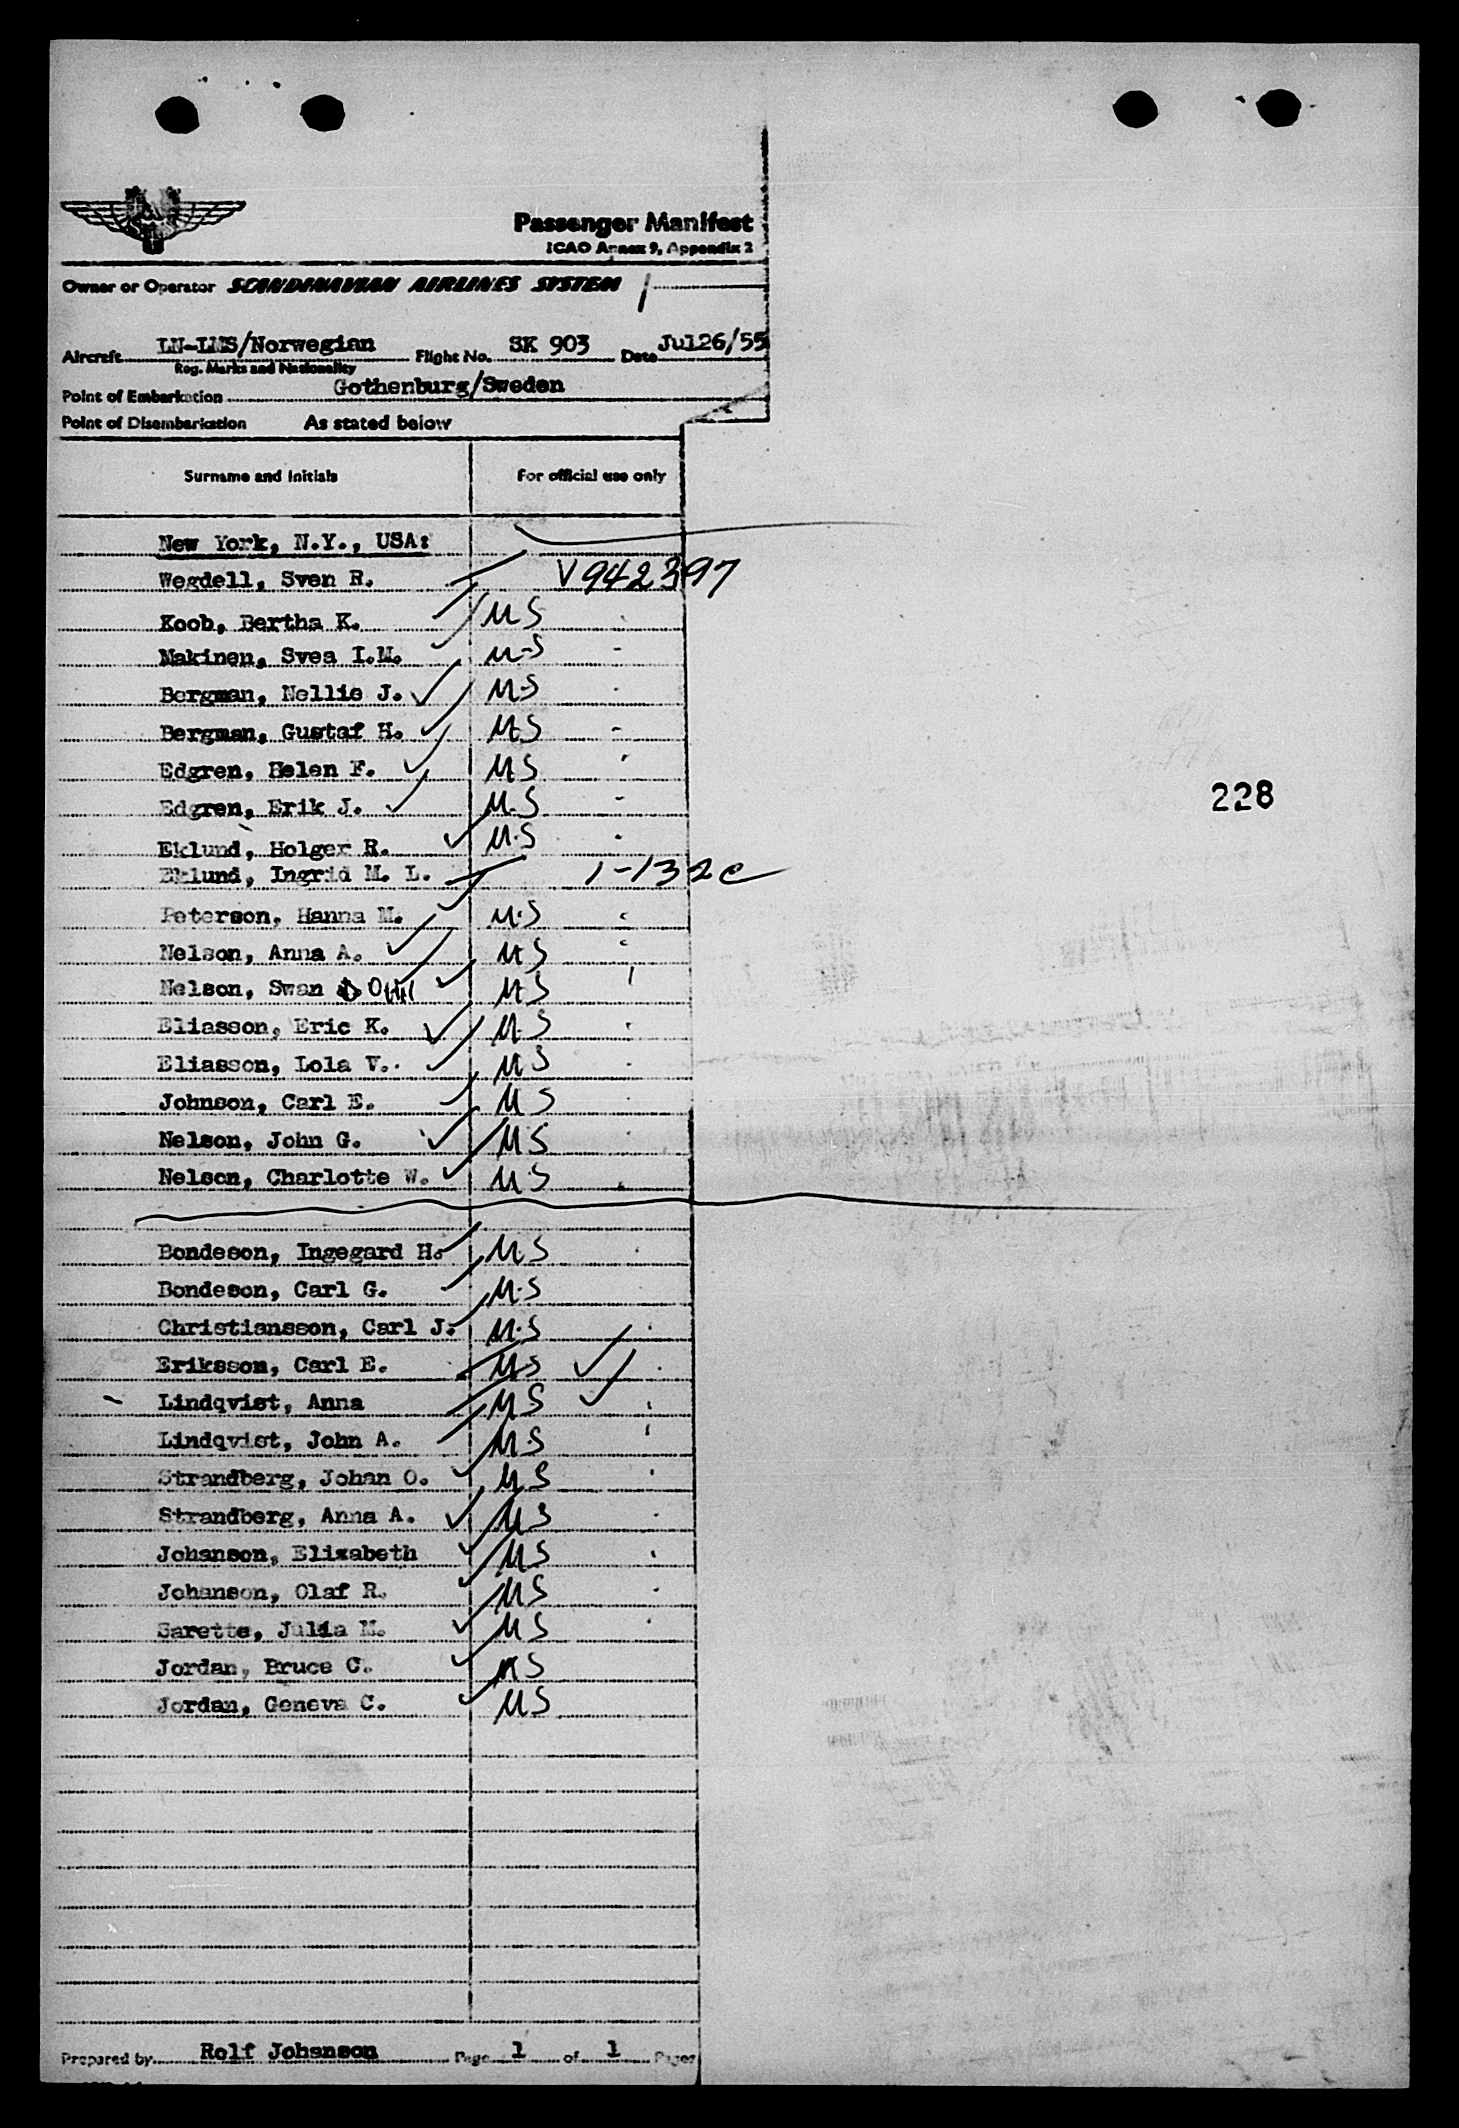 SAS
Passenger Manifest
ICAO Annex 9, Appendix 2
Owner or Operator SCANDINAVIAN AIRLINES SYSTEM
Aircraft LN-LMS/Norwegian Flight No. SK 903 Date Jul26/55
Reg. Marks and Nationality
Point of Embarkation Gothenburg/Sweden
Point of Disembarkation As stated below
Surname and Initials For official use only
New York, N.Y., USA:
Wegdell, Sven R. V942397
Koob, Bertha K. MS
Makinen, Svea I.M. M-S
Bergman, Nellie J. M-S
Bergman, Gustaf H. MS
Edgren, Helen F. MS
Edgren, Erik J. M.S
Eklund, Holger R. M.S
Eklund, Ingrid M. L. 1-132c
Peterson, Hanna M. M.S
Nelson, Anna A. MS
Nelson, Swan MS
Eliasson, Eric K. M.S
Eliasson, Lola V. MS
Johnson, Carl E. MS
Nelson, John G. MS
Nelson, Charlotte W. M.S
Bondeson, Ingegard H. MS
Bondeson, Carl G. M.S
Christiansson, Carl J. M.S
Eriksson, Carl E. MS
Lindqvist, Anna MS
Lindqvist, John A. M.S
Strandberg, Johan O. MS
Strandberg, Anna A. MS
Johanson, Elizabeth MS
Johanson, Olaf R. MS
Sarette, Julia M. MS
Jordan, Bruce C. MS
Jordan, Geneva C. MS
228
Prepared by Rolf Johanson Page 1 of 1 Pages